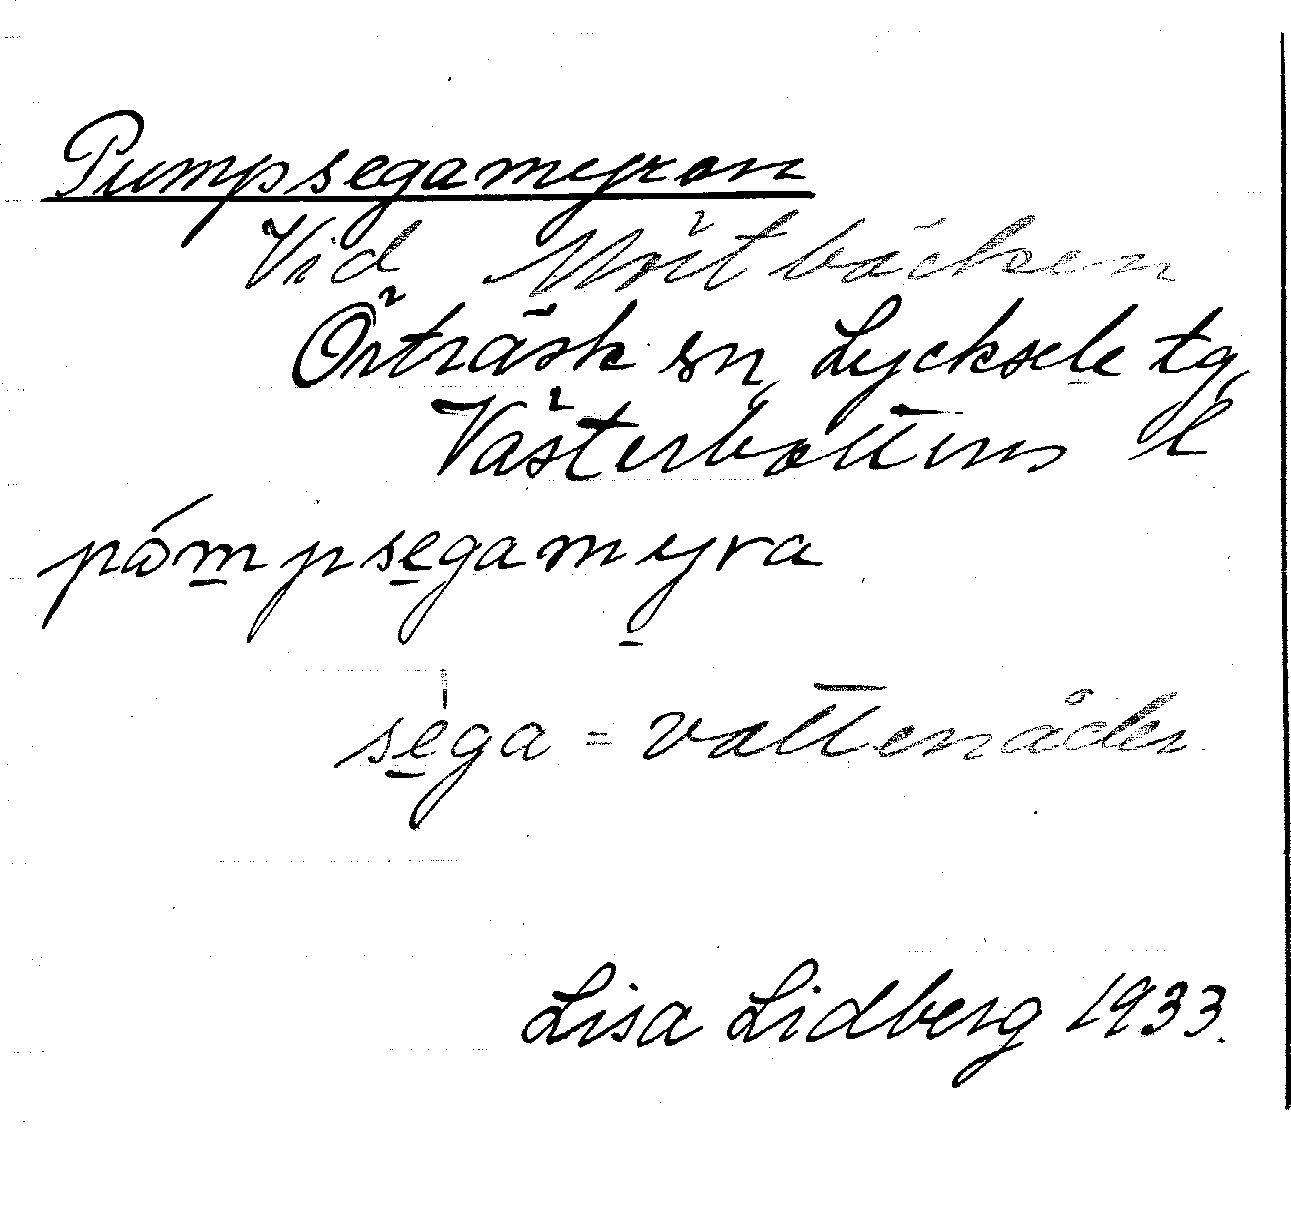 Pumpsegamyran
Vid Mörtbäcken
Örträsk sn, Lycksele tg,
Västerbottens l
pómpsegamyra
sega = vattenåder
Lisa Lidberg 1933.